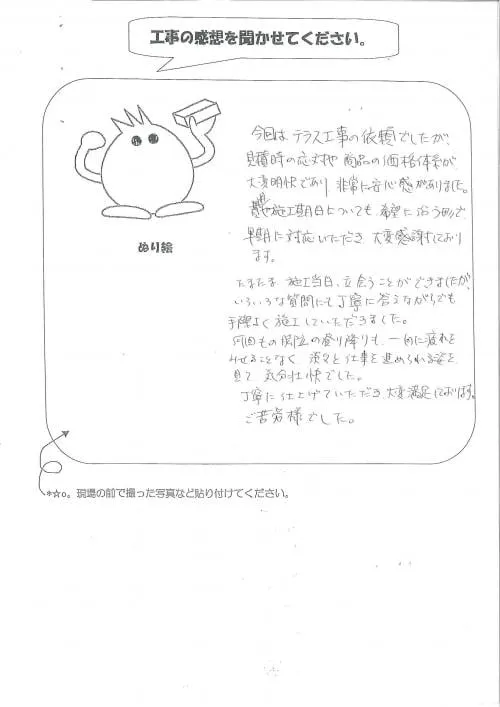 工事の感想を聞かせてください。
今回は テラス工事の依頼でしたが、
見積時の応対や 商品の価格体系が、
大変明快であり 非常に安心感がありました。
施工期日についても、希望に沿う形で、
早期に対応いただき 大変感謝しており
ます。
ぬり絵
たまたま 施工当日、立会うことができましたが、
いろいろな質問にも丁寧に答えながらでも
手際よく施工していただきました。
何回もの階段の登り降りも、一向に疲れを
みせることなく 淡々と仕事を進められる姿を
見て 気分壮快でした。
丁寧に仕上げていただき 大変満足しております。
ご苦労様でした。
*☆o。現場の前で撮った写真など貼り付けてください。